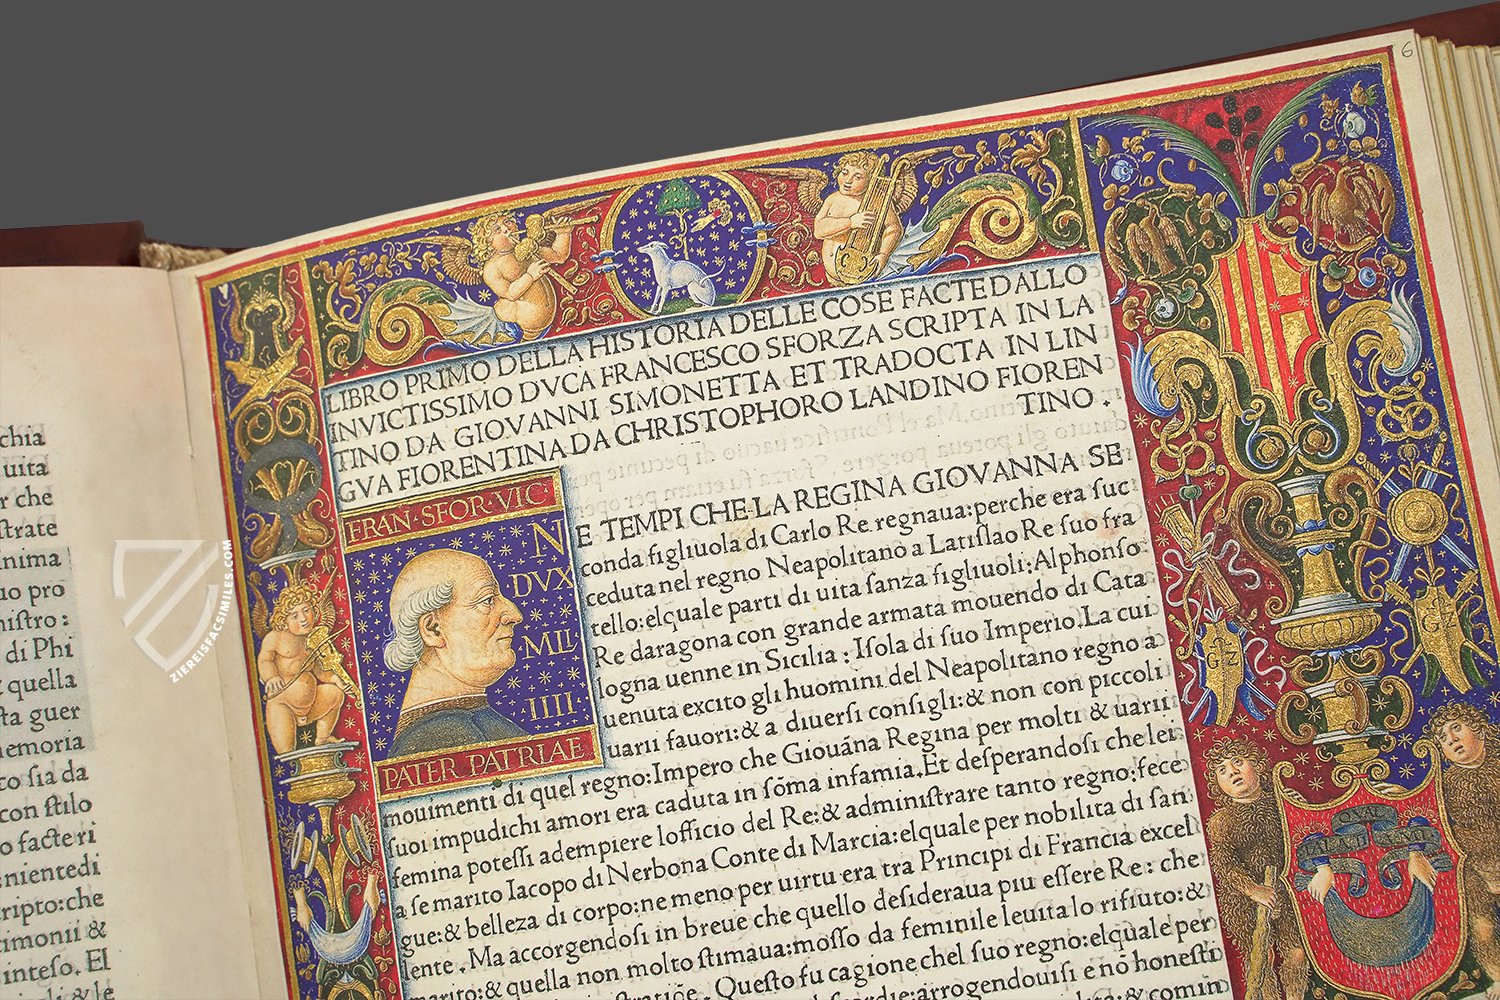 6
chia
uita
r che
ſtrate
nima
uo pro
niſtro:
di Phi
quella
ſta guer
memoria
co ſia da
con ſtilo
o facteri
enientedi
cripto:che
cimonii &
inteſo. El
& le
LIBRO PRIMO DELLA HISTORIA DELLE COSE FACTE DALLO
INVICTISSIMO DVCA FRANCESCO SFORZA SCRIPTA IN LA
TINO DA GIOVANNI SIMONETTA ET TRADOCTA IN LIN
GVA FIORENTINA DA CHRISTOPHORO LANDINO FIOREN
TINO.
FRAN·SFOR·VIC·
N
DVX
MLI
IIII
PATER PATRIAE
E TEMPI CHE LA REGINA GIOVANNA SE
conda figliuola di Carlo Re regnaua:perche era ſuc
ceduta nel regno Neapolitano a Latiſlao Re ſuo fra
tello:elquale parti di uita ſanza figliuoli:Alphonſo
Re daragona con grande armata mouendo di Cata
logna uenne in Sicilia: Iſola di ſuo Imperio.La cui
uenuta excito gli huomini del Neapolitano regno a
uarii fauori:& a diuerſi conſigli:& non con piccoli
mouimenti di quel regno:Impero che Giouāna Regina per molti & uarii
ſuoi impudichi amori era caduta in ſōma infamia.Et deſperandoſi che lei
femina poteſſi adempiere lofficio del Re:& adminiſtrare tanto regno:fece
a ſe marito Iacopo di Nerbona Conte di Marcia:elquale per nobilita di ſan
gue:& belleza di corpo:ne meno per uirtu era tra Principi di Francia excel
lente. Ma accorgendoſi in breue che quello deſideraua piu eſſere Re: che
marito:& quella non molto ſtimaua:moſſo da feminile leuita lo rifiuto:&
Queſto fu cagione chel ſuo regno:elquale per
arrogendouiſi e nō honeſti
:& comin
G Z
G Z
ZIEREISFACSIMILES.COM